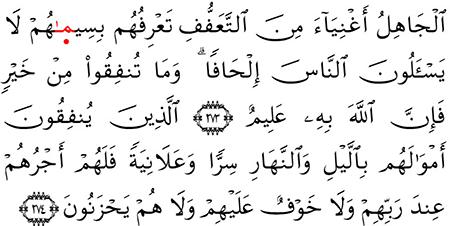 ٱلْجَاهِلُ أَغْنِيَآءَ مِنَ ٱلتَّعَفُّفِ تَعْرِفُهُم بِسِيمَـٰهُمْ لَا
يَسْـَٔلُونَ ٱلنَّاسَ إِلْحَافًا ۗ وَمَا تُنفِقُوا۟ مِنْ خَيْرٍ
فَإِنَّ ٱللَّهَ بِهِۦ عَلِيمٌ ٢٧٣ ٱلَّذِينَ يُنفِقُونَ
أَمْوَٰلَهُم بِٱلَّيْلِ وَٱلنَّهَارِ سِرًّا وَعَلَانِيَةً فَلَهُمْ أَجْرُهُمْ
عِندَ رَبِّهِمْ وَلَا خَوْفٌ عَلَيْهِمْ وَلَا هُمْ يَحْزَنُونَ ٢٧٤